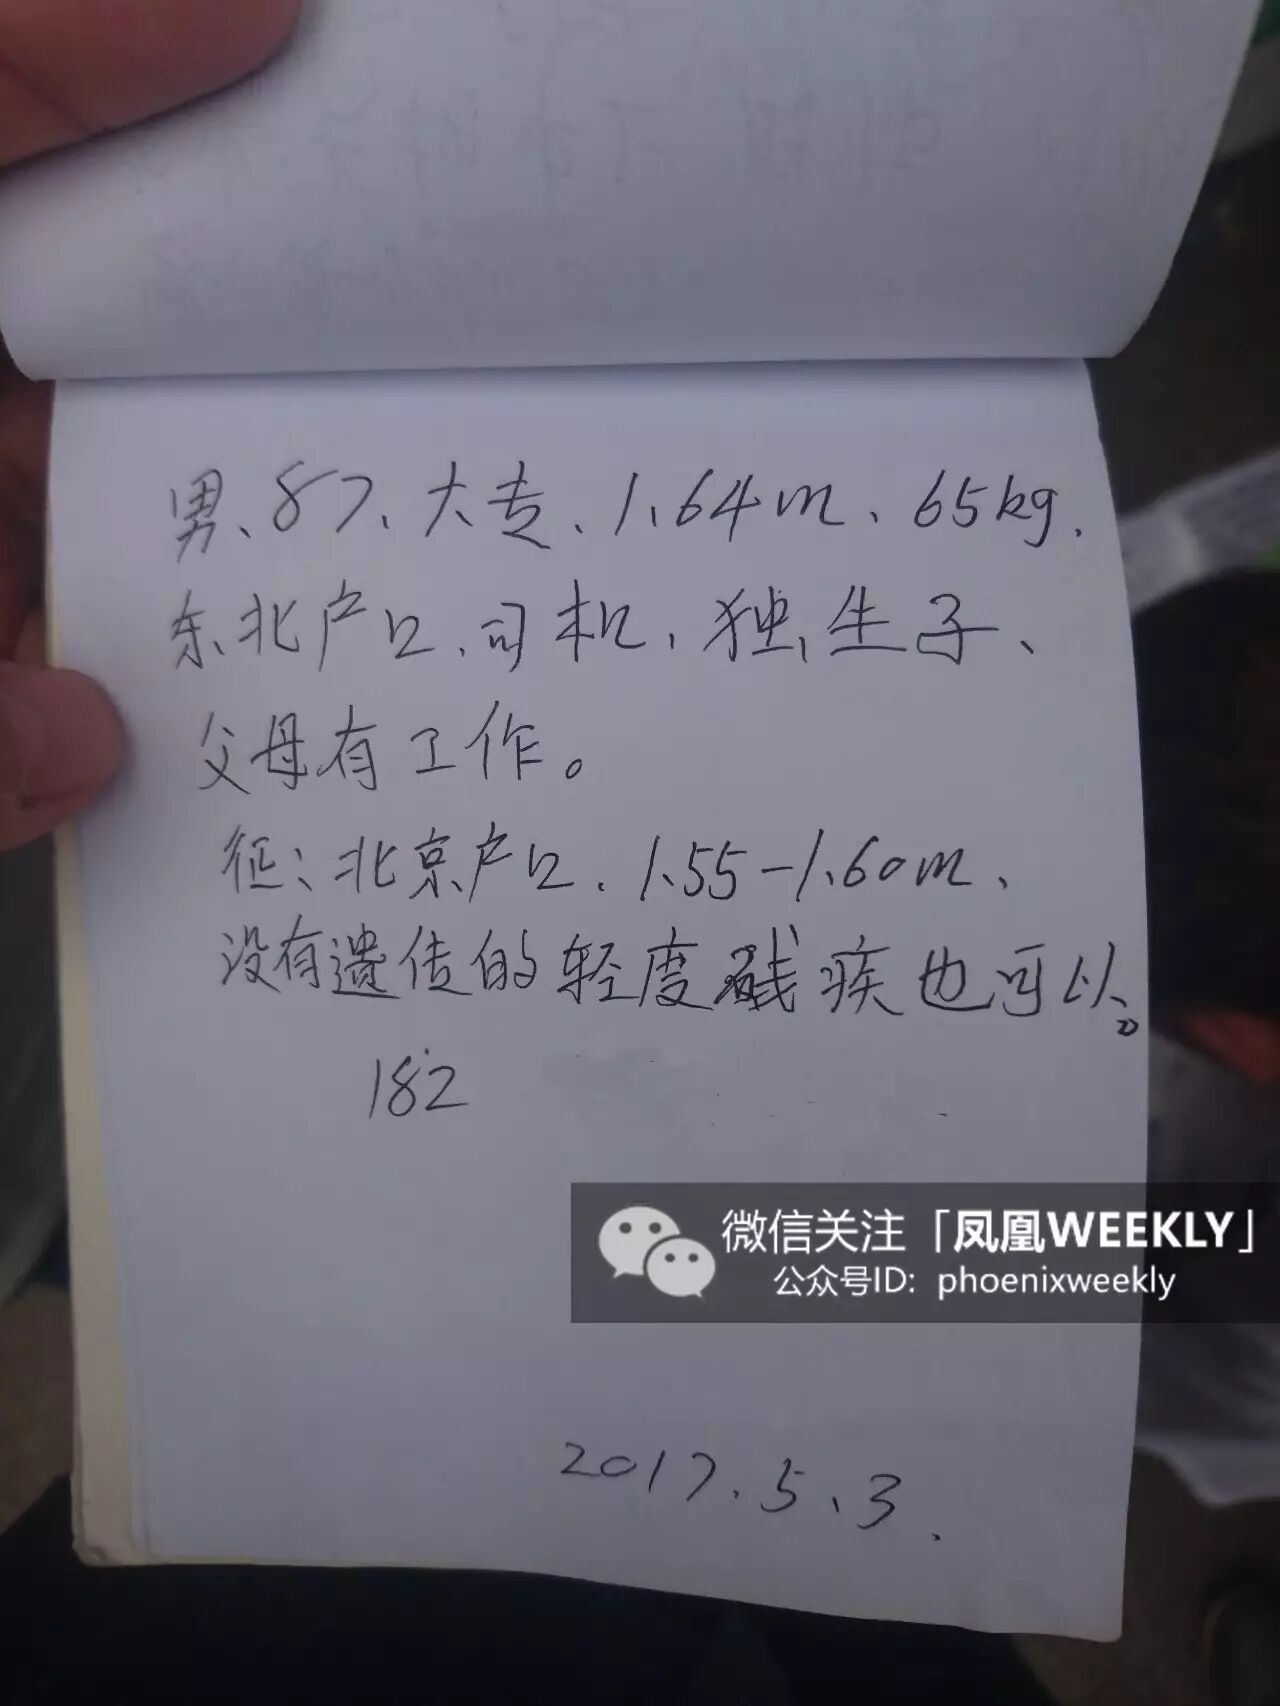 男、87、大专、1.64m、65kg、
东北户口、司机、独生子、
父母有工作。
征：北京户口、1.55-1.60m、
没有遗传的轻度残疾也可以。
182
微信关注「凤凰WEEKLY」
公众号ID: phoenixweekly
2017.5.3.